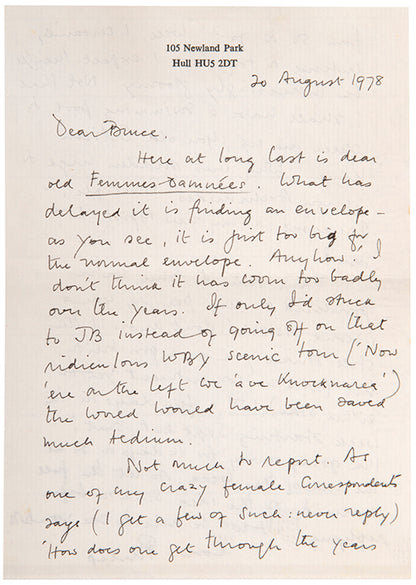 105 Newland Park
Hull HU5 2DT
20 August 1978
Dear Bruce,
Here at long last is dear
old Femmes Damnées. What has
delayed it is finding an envelope –
as you see, it is just too big for
the normal envelope. Anyhow! I
don't think it has worn too badly
over the years. If only I'd stuck
to JB instead of going off on that
ridiculous WBY scenic tour ('Now
'ere on the left we 'ave Knocknarea')
the world would have been saved
much tedium.
Not much to report. As
one of my crazy female correspondents
says (I get a few of such: never reply)
'How does one get through the years